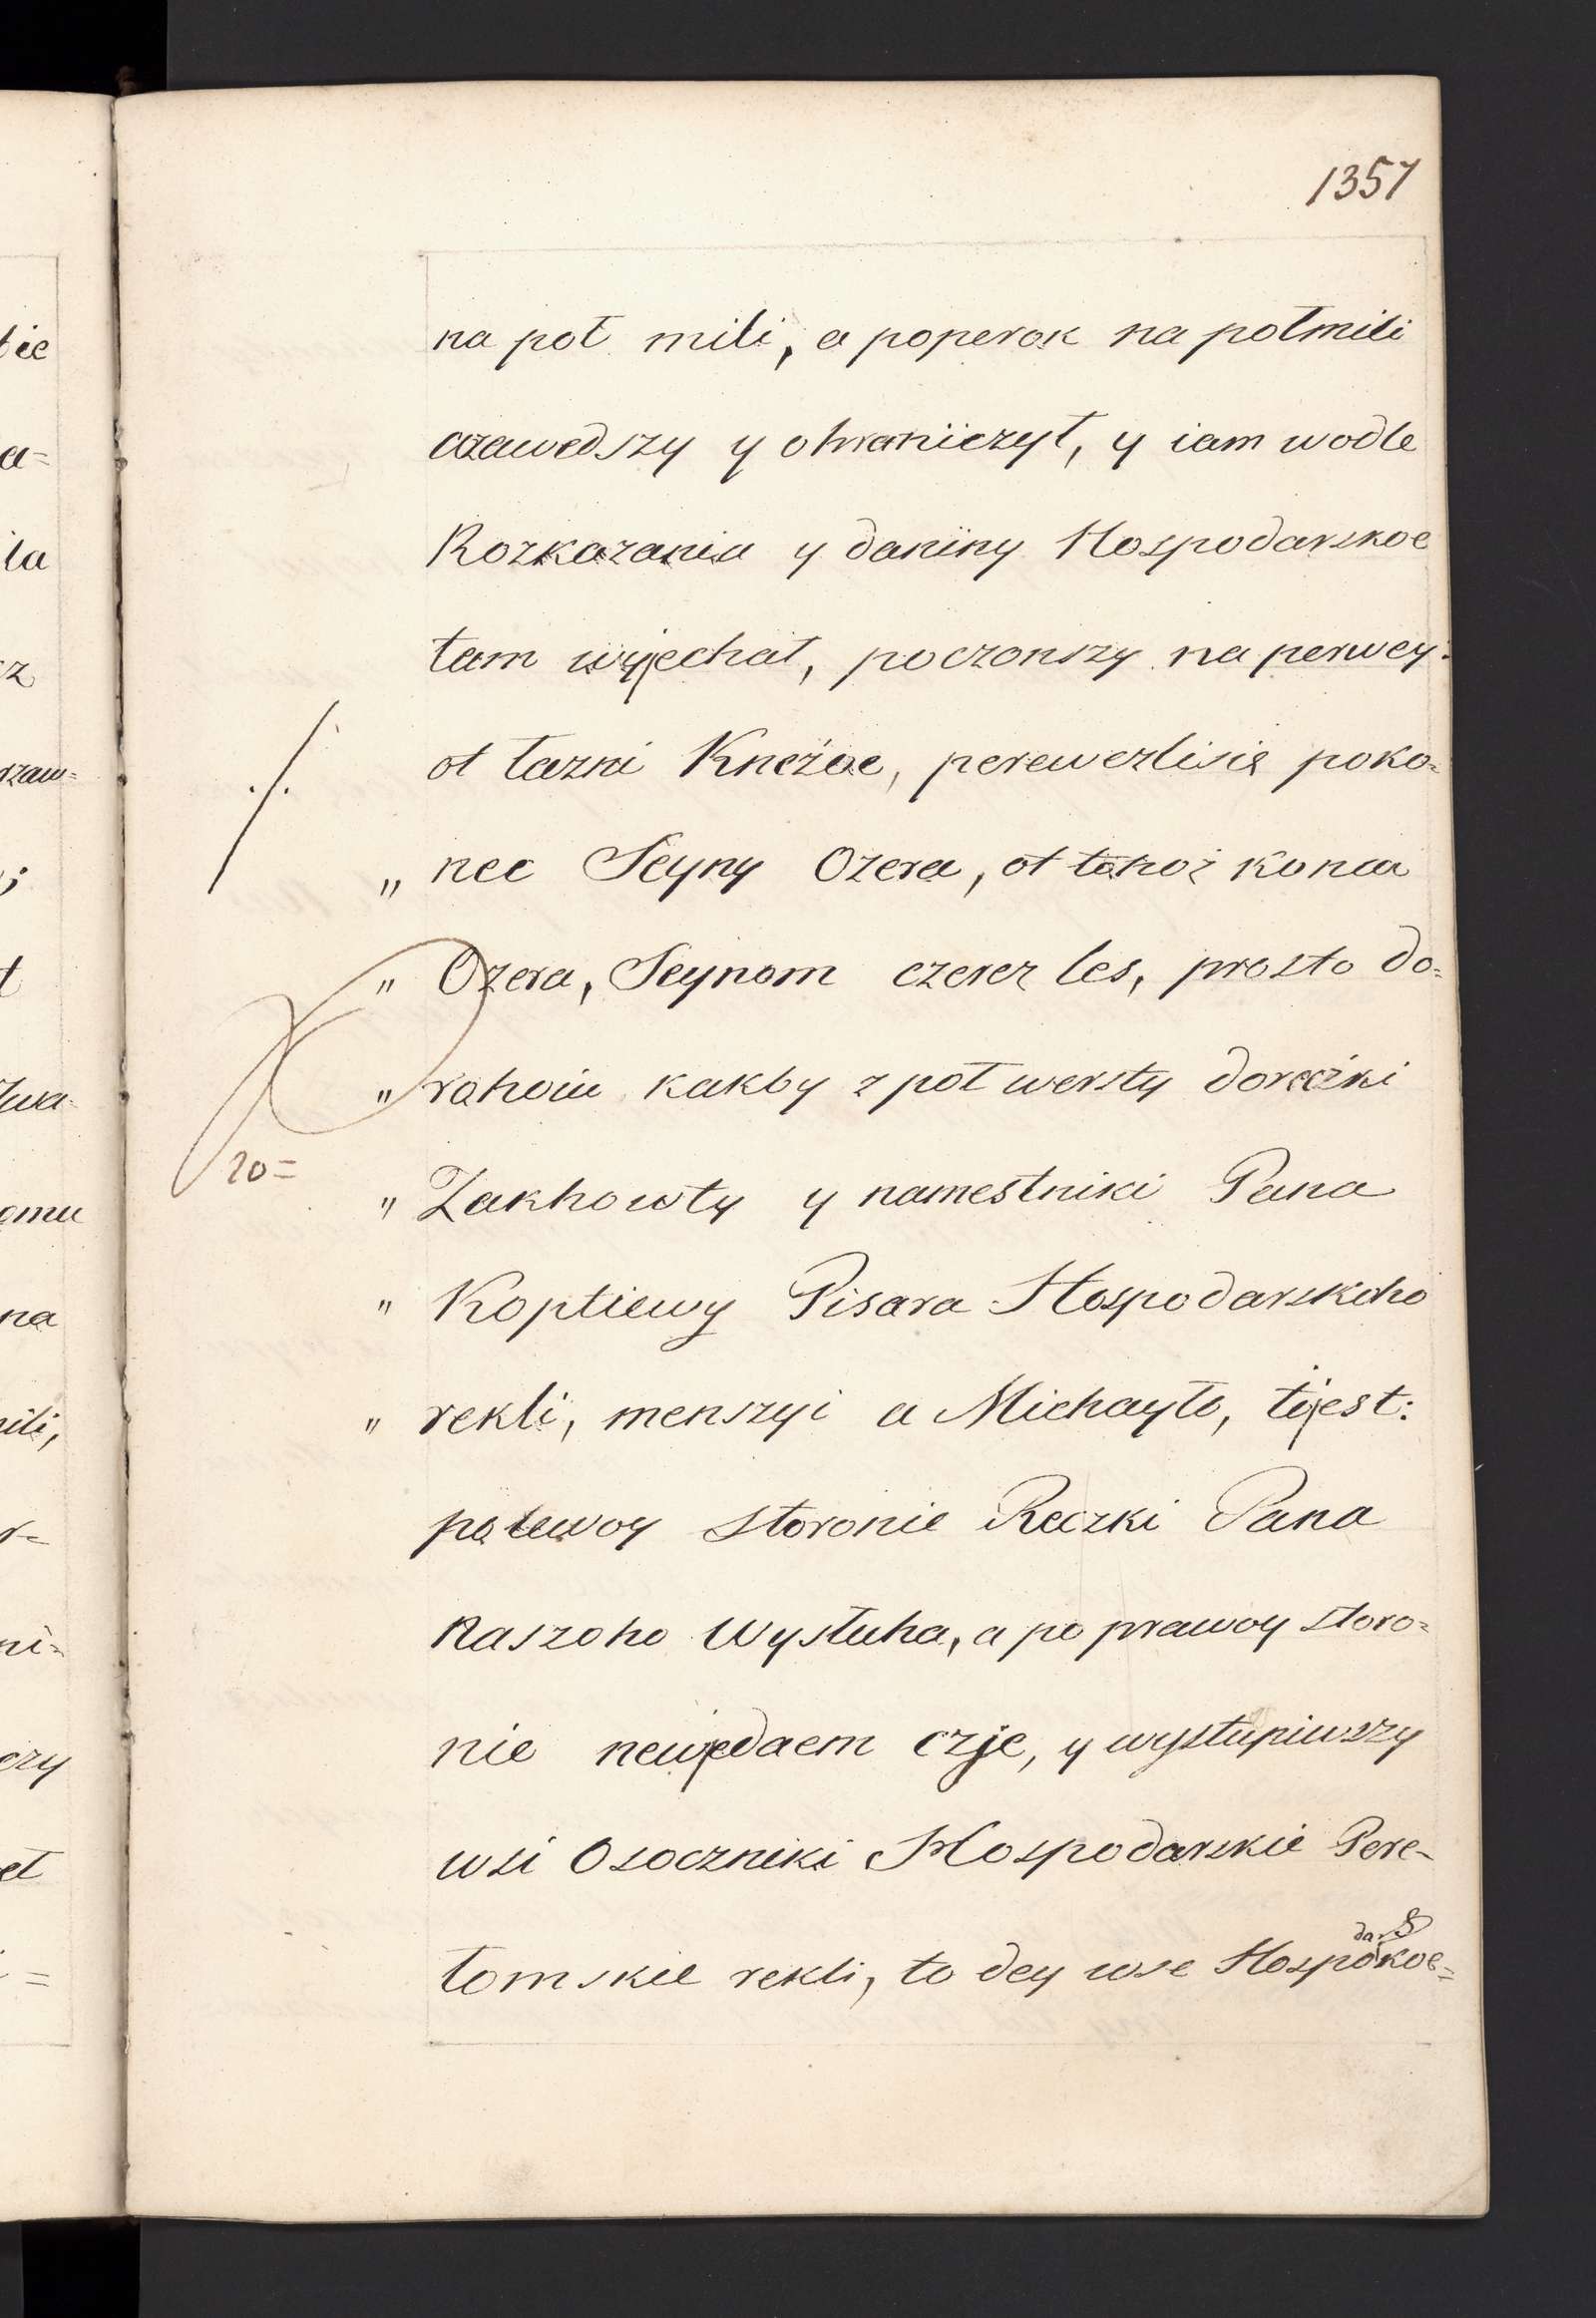 1357
na poł mili, a poperok na połmili
zawedszy y ohraniczył, y iam wodle
Rozkazania y daniny Hospodarskoe
tam wyjechał, poczonszy na perwey:
ot łazni Kneżae, perewezlisię poko-
„ nec Seyny Ozera, ot tohoż konca
„ Ozera, Seynom czerez les, prosto do-
„ rohoiu kakby z poł wersty doreczki
20=
„ Zakhowty y namestniki Pana
„ Koptiewy Pisara Hospodarskoho
„ rekli, menszyi a Michayło, tijest:
polewoy storonie Reczki Pana
Naszoho Wysłuha, a po prawoy storo-
nie newjedaem czje, y wystupiwszy
wsi Osoczniki Hospodarskie Pere-
łomskie rekli, to dey wse Hospodarskoe=